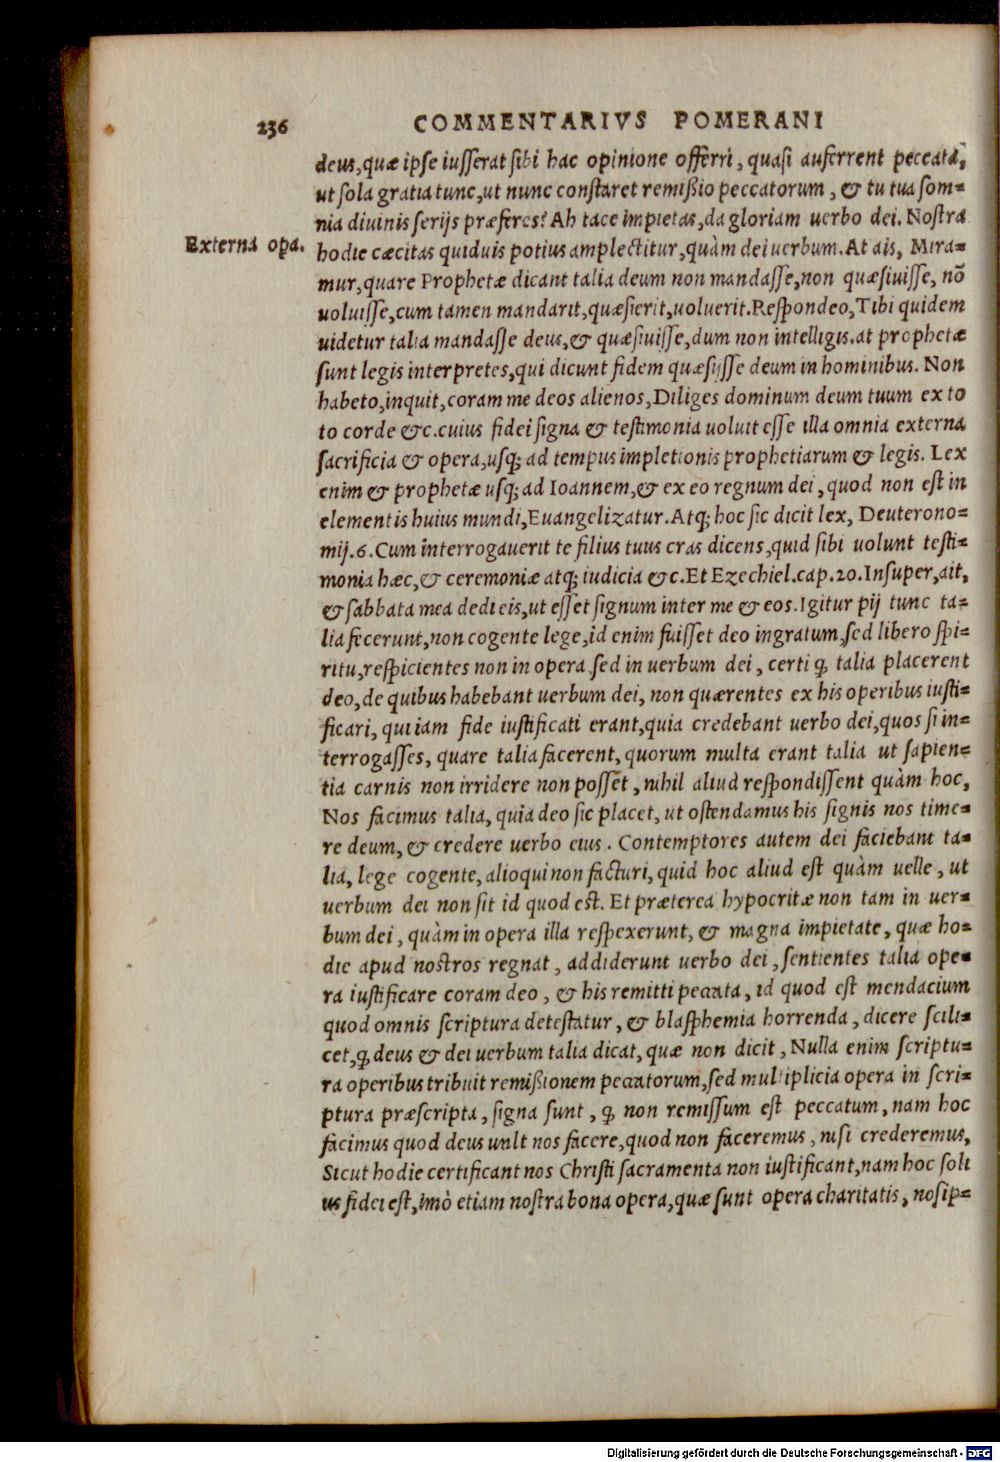 236 COMMENTARIVS POMERANI
deus,quæ ipse iusserat sibi hac opinione offerri, quasi auferrent peccata,
ut sola gratia tunc,ut nunc constaret remißio peccatorum, & tu tua som-
nia diuinis serijs præferes? Ah tace impietas,da gloriam uerbo dei. Nostra
Externa opa.
hodie cæcitas quiduis potius amplectitur,quàm dei uerbum. At ais, Mira-
mur,quare Prophetæ dicant talia deum non mandasse,non quæsiuisse, nõ
uoluisse,cum tamen mandarit,quæsierit,uoluerit.Respondeo,Tibi quidem
uidetur talia mandasse deus,& quæsiuisse,dum non intelligis.at prophetæ
sunt legis interpretes,qui dicunt fidem quæsijsse deum in hominibus. Non
habeto,inquit,coram me deos alienos,Diliges dominum deum tuum ex to
to corde &c.cuius fidei signa & testimonia uoluit esse illa omnia externa
sacrificia & opera,usq; ad tempus impletionis prophetiarum & legis. Lex
enim & prophetæ usq; ad Ioannem,& ex eo regnum dei, quod non est in
elementis huius mundi,Euangelizatur. Atq; hoc sic dicit lex, Deuterono-
mij.6.Cum interrogauerit te filius tuus cras dicens,quid sibi uolunt testi-
monia hæc,& ceremoniæ atq; iudicia &c.Et Ezechiel.cap.20.Insuper,ait,
& sabbata mea dedi eis,ut esset signum inter me & eos.Igitur pij tunc ta-
lia fecerunt,non cogente lege,id enim fuisset deo ingratum,sed libero spi-
ritu,respicientes non in opera sed in uerbum dei, certi ꝙ talia placerent
deo,de quibus habebant uerbum dei, non quærentes ex his operibus iusti-
ficari, qui iam fide iustificati erant,quia credebant uerbo dei,quos si in-
terrogasses, quare talia facerent, quorum multa erant talia ut sapien-
tia carnis non irridere non posset, nihil aliud respondissent quàm hoc,
Nos facimus talia, quia deo sic placet, ut ostendamus his signis nos time-
re deum, & credere uerbo eius. Contemptores autem dei faciebant ta-
lia, lege cogente, alioqui non facturi, quid hoc aliud est quàm uelle, ut
uerbum dei non sit id quod est. Et præterea hypocritæ non tam in uer-
bum dei, quàm in opera illa respexerunt, & magna impietate, quæ ho-
die apud nostros regnat, addiderunt uerbo dei, sentientes talia ope-
ra iustificare coram deo, & his remitti peccata, id quod est mendacium
quod omnis scriptura detestatur, & blasphemia horrenda, dicere scili-
cet, ꝙ deus & dei uerbum talia dicat, quæ non dicit, Nulla enim scriptu-
ra operibus tribuit remißionem peccatorum,sed multiplicia opera in scri-
ptura præscripta, signa sunt, ꝙ non remissum est peccatum, nam hoc
facimus quod deus uult nos facere,quod non faceremus, nisi crederemus,
Sicut hodie certificant nos Christi sacramenta non iustificant,nam hoc soli
us fidei est, imò etiam nostra bona opera,quæ sunt opera charitatis, nosip-
Digitalisierung gefördert durch die Deutsche Forschungsgemeinschaft - DFG